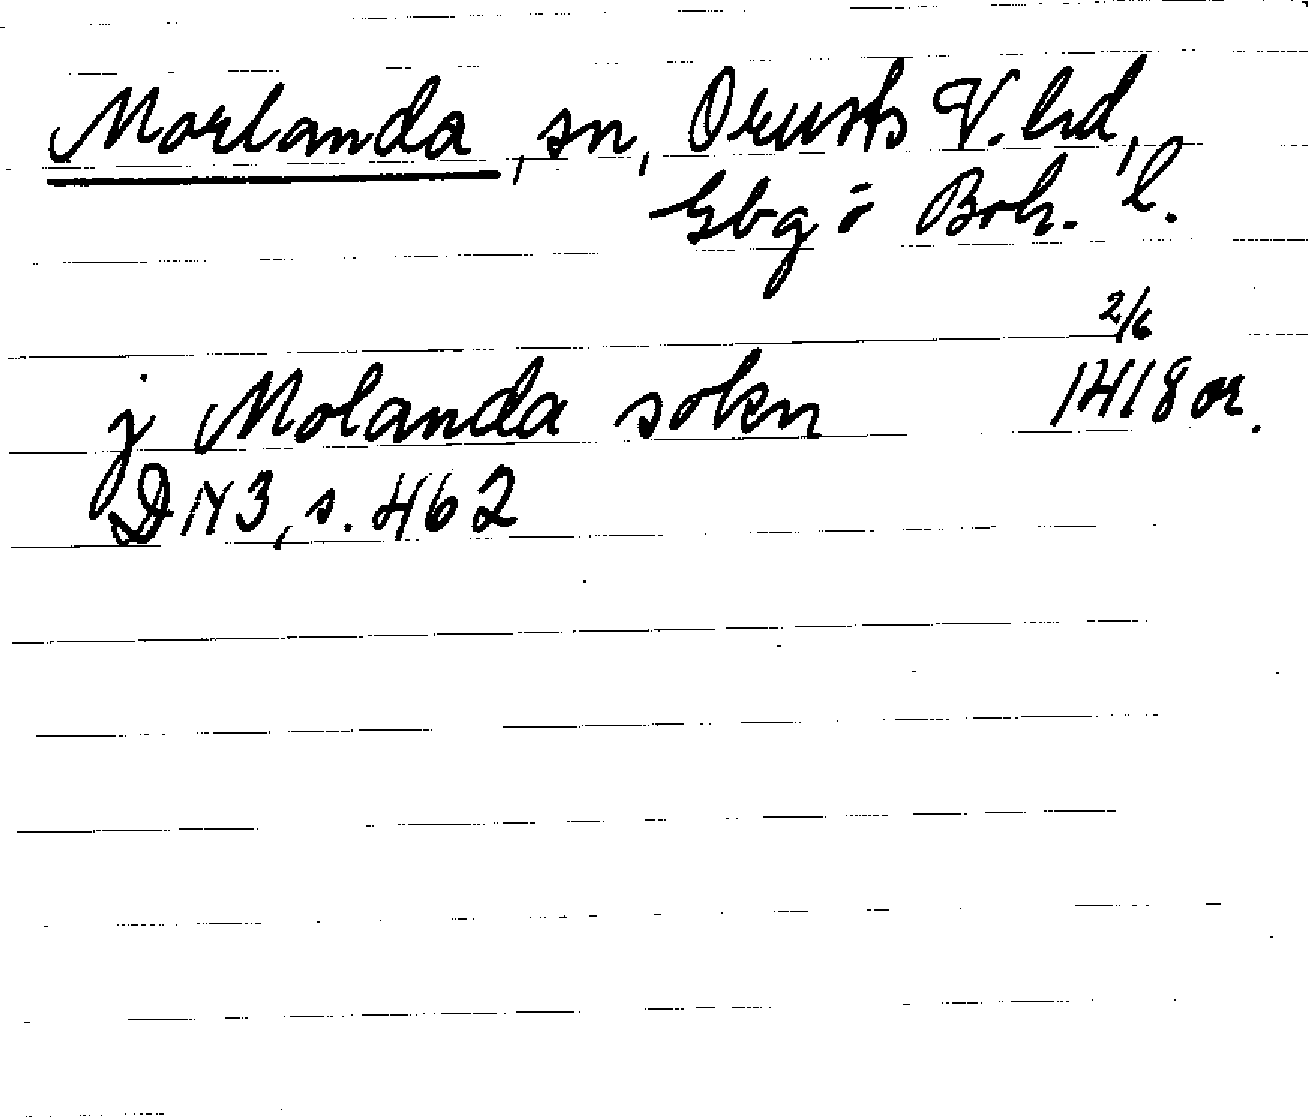 Morlanda, sn, Orusts V. hd,
Gbg o Boh. l.
2/6
j Molanda sokn 1418 or.
DN 3, s. 462